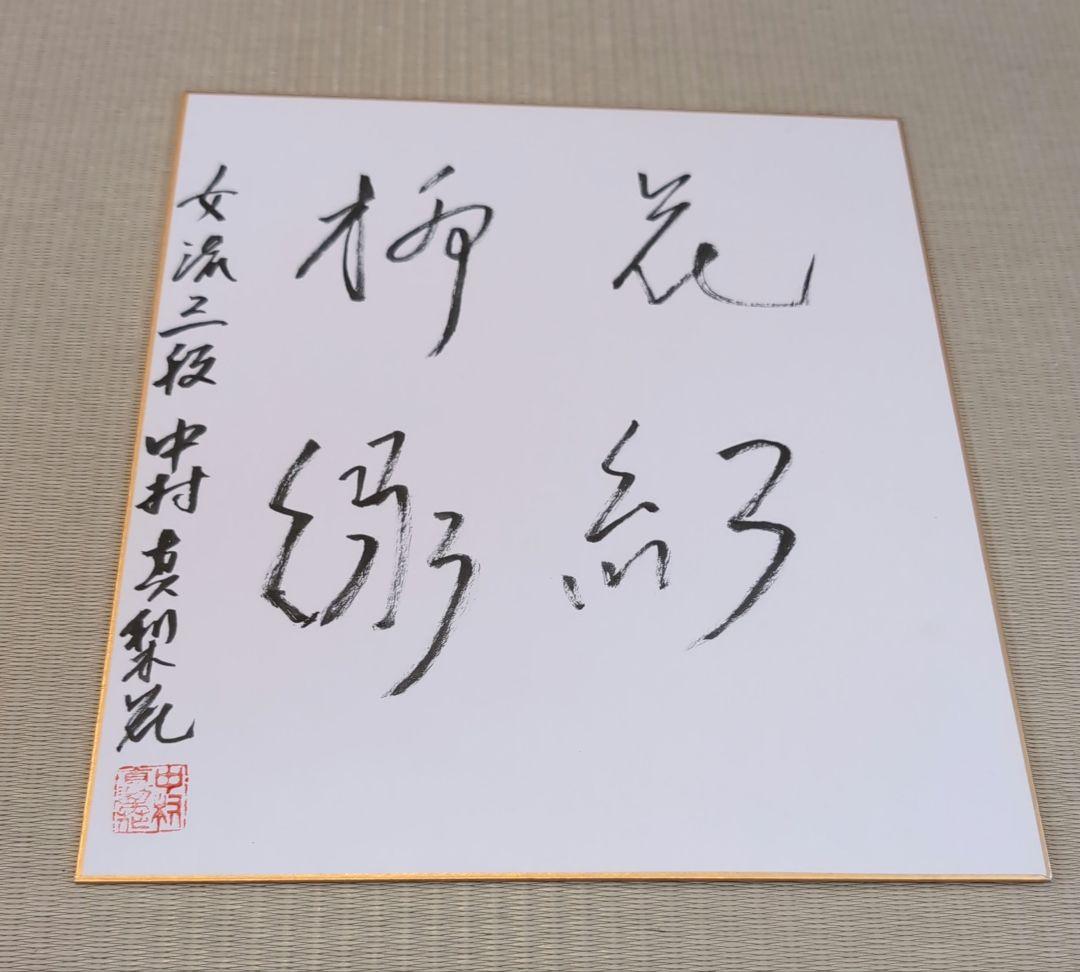 花紅
柳緑
女流三段 中村真梨花
中村真梨花